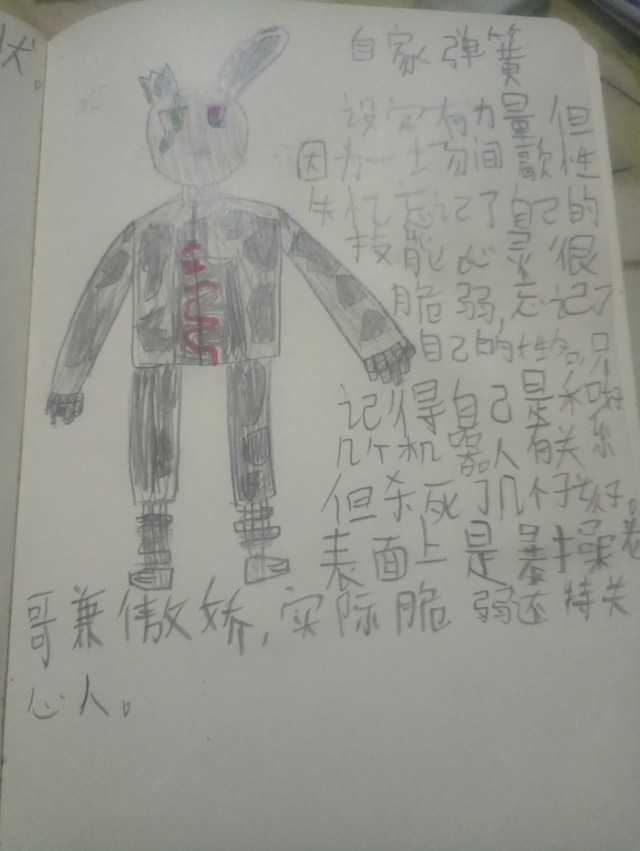 状。
自家弹簧
设定有力量但
因为一些勿间歇性
失忆忘记了自己的
技能心灵很
脆弱,忘记了
自己的性格,只
记得自己是和哪
几个机器人有关系
但杀死了几个孩好。
表面上是暴操老
哥兼傲娇,实际脆弱还特关
心人。